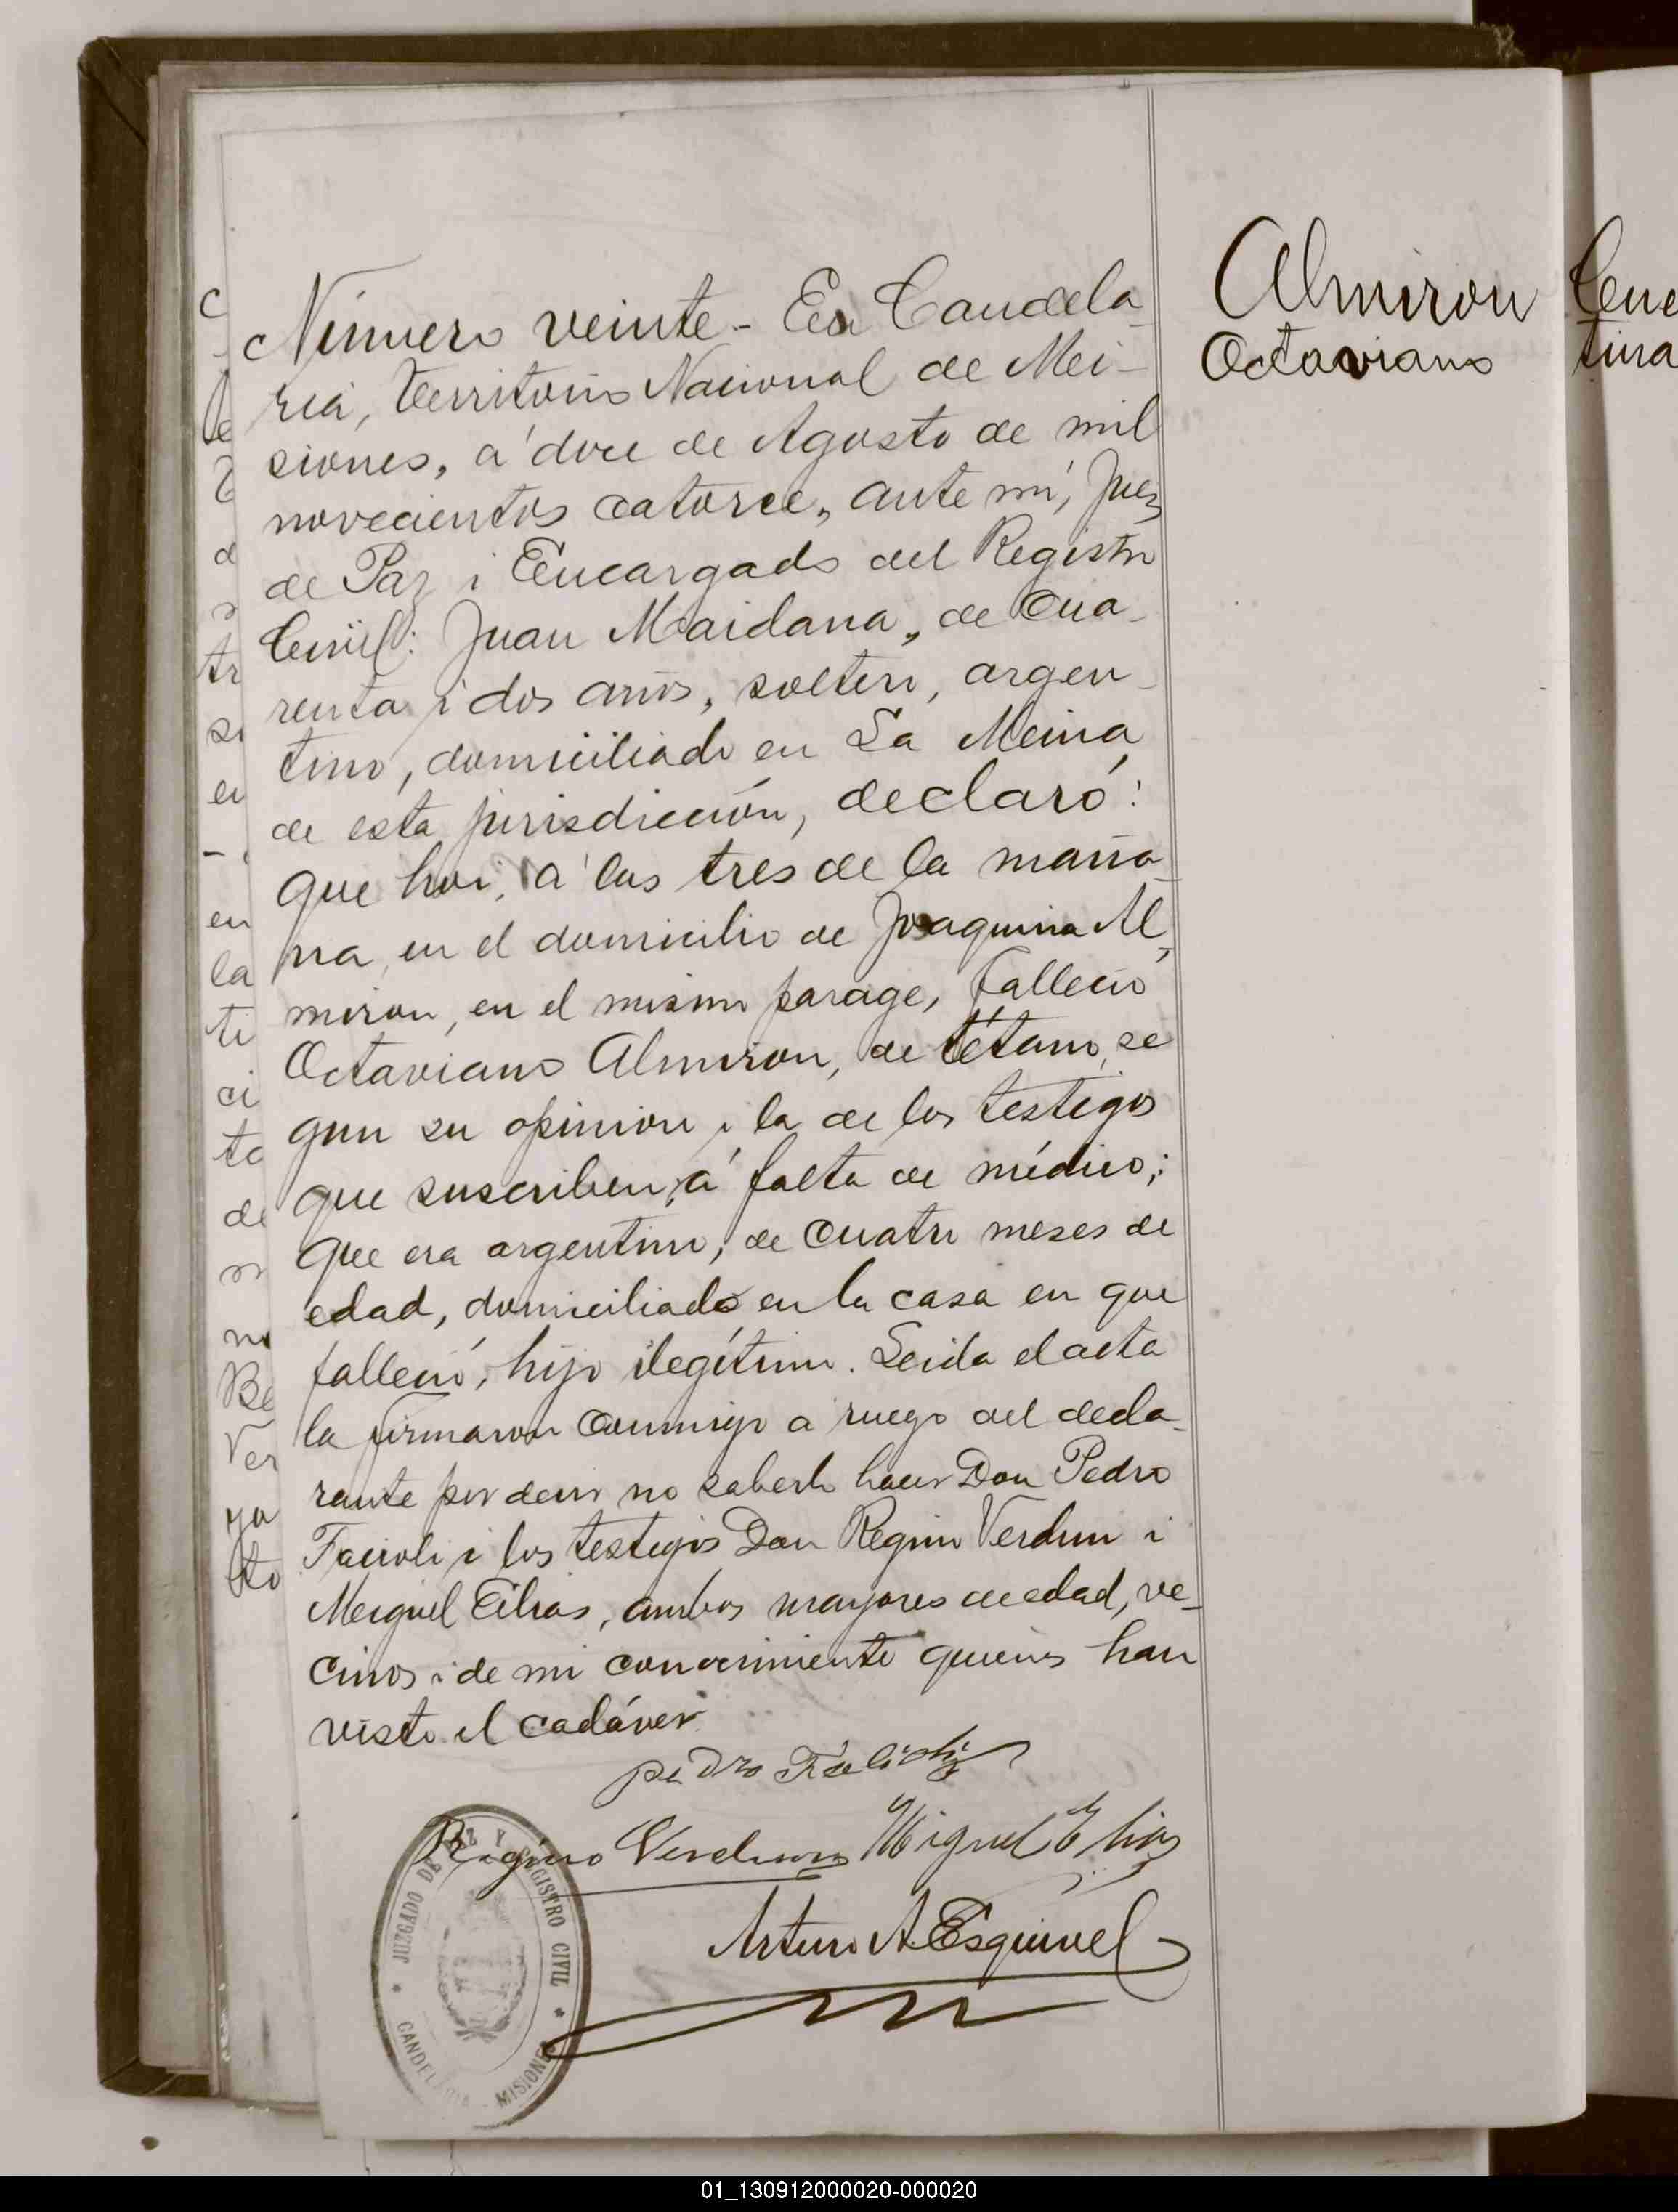 Almiron
Octaviano
Número veinte - En Candela_
ria, Territorio Nacional de Mi_
siones, á doce de Agosto de mil
novecientos catorce, ante mí, Juez
de Paz i Encargado del Registro
Civil: Juan Maidana, de cua_
renta i dos años, soltero, argen_
tino, domiciliado en La Mina,
de esta jurisdicción, declaró:
Que hoi, á las tres de la maña_
na, en el domicilio de Joaquina Al_
miron, en el mismo parage, falleció
Octaviano Almiron, de tétano, se
gun su opinion i la de los testigos
que suscriben, á falta de médico;
que era argentino, de cuatro meses de
edad, domiciliado en la casa en que
falleció, hijo ilegítimo. Leida el acta
la firmaron conmigo a ruego del decla_
rante por decir no saberlo hacer Don Pedro
Facioli i los testigos Don Regino Verdun i
Miguel Elias, ambos mayores de edad, ve_
cinos i de mi conocimiento quienes han
visto el cadáver.
Pedro
Regino Verdun Miguel Elias
Arturo A. Esquivel
JUZGADO DE PAZ Y REGISTRO CIVIL
CANDELARIA MISIONES
01_130912000020-000020